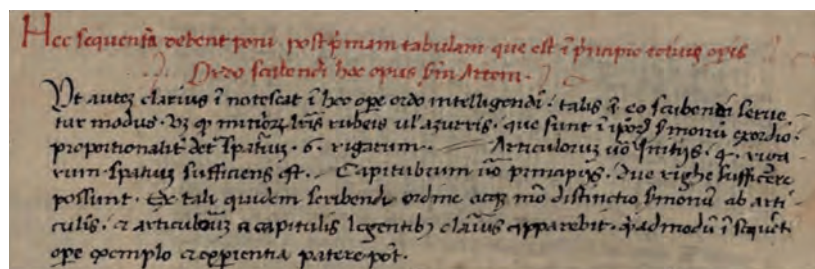 Hec sequentia debent poni post p̄mam tabulam que est ī p̄ncipio totius opis
Ordo scribendi hoc opus s̄m Artem.
Ut autez clarius ī notescat ī hoc ope ordo intelligendi. talis ī eo scribendi serue-
tur modus. vz qꝫ lr̄is rubeis ul' azurris. que sunt ī ip̄oꝝ s̄monū exordio.
proportionalit̄ det̄ spatiuꝫ. 6. rigarum. Articuloruꝫ uō Initijs. 4. riga-
rum. spatiuꝫ sufficiens est. Capitulorum uō principijs. Due righe sufficere
possunt. Ex tali quidem scribendi ordine atqꝫ mō distinctio s̄monū ab arti-
culis. et articuloruꝫ a capitulis legentibꝫ clarius apparebit. quēadmodū ī sequēti
ope exemplo et experientia patere pōt.